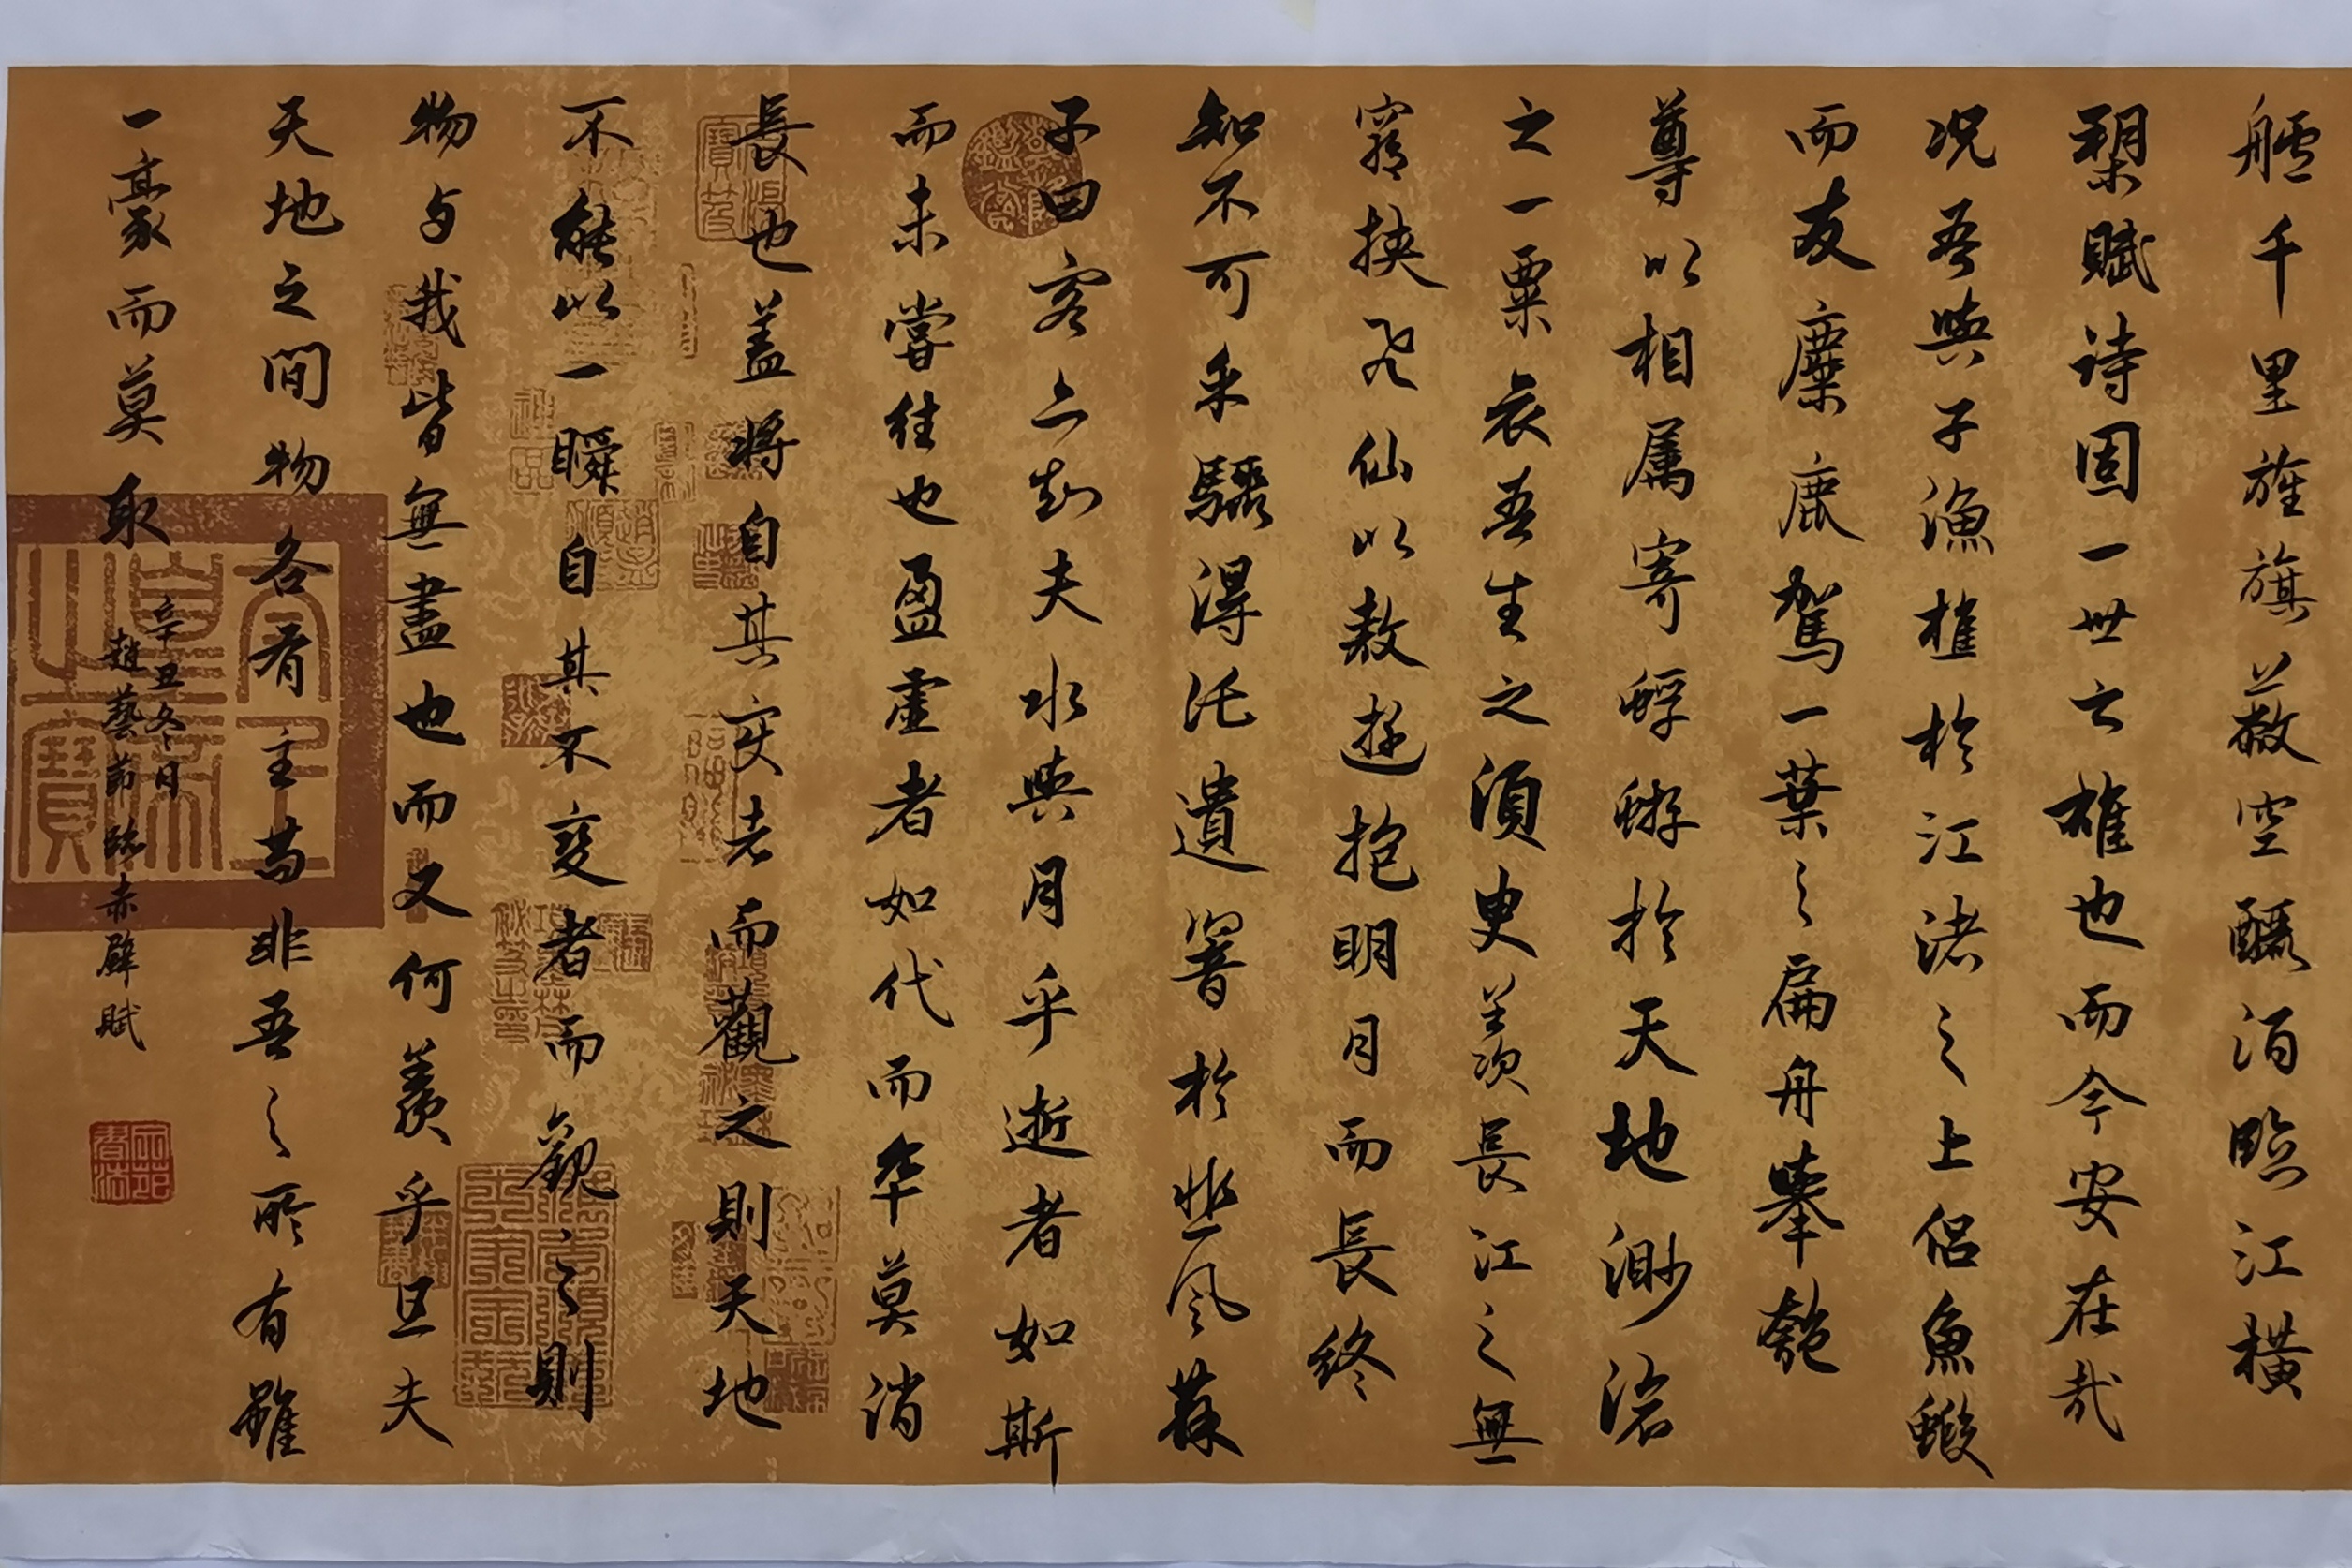 艫千里旌旗蔽空釃酒臨江橫
槊賦詩固一世之雄也而今安在哉
况吾與子漁樵於江渚之上侶魚蝦
而友麋鹿駕一葉之扁舟舉匏
尊以相属寄蜉蝣於天地渺滄
之一粟哀吾生之須臾羨長江之無
窮挾飛仙以遨遊抱明月而長終
知不可乎驟得託遺響於悲風蘇
子曰客亦知夫水與月乎逝者如斯
而未嘗往也盈虛者如代而卒莫消
長也蓋將自其變者而觀之則天地
不能以一瞬自其不變者而觀之則
物与我皆無盡也而又何羨乎且夫
天地之間物各有主苟非吾之所有雖
一豪而莫取
辛丑冬日
趙藝節臨赤壁賦